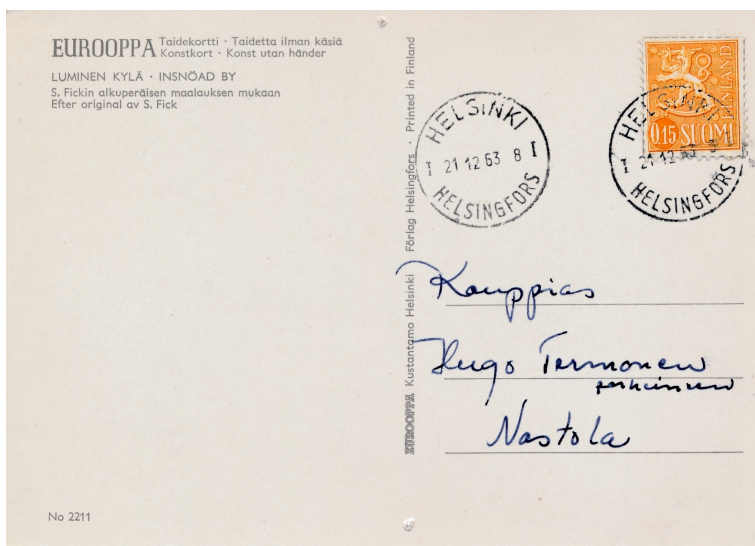 EUROOPPA Taidekortti · Taidetta ilman käsiä
Konstkort · Konst utan händer
LUMINEN KYLÄ · INSNÖAD BY
S. Fickin alkuperäisen maalauksen mukaan
Efter original av S. Fick
No 2211
EUROOPPA Kustantamo Helsinki Förlag Helsingfors · Printed in Finland
HELSINKI
I 21 12 63 8 I
HELSINGFORS
FINLAND
0.15 SUOMI
HELSINKI
I 21 12 63
HELSINGFORS
Kauppias
Hugo Termonen
perheineen
Nastola